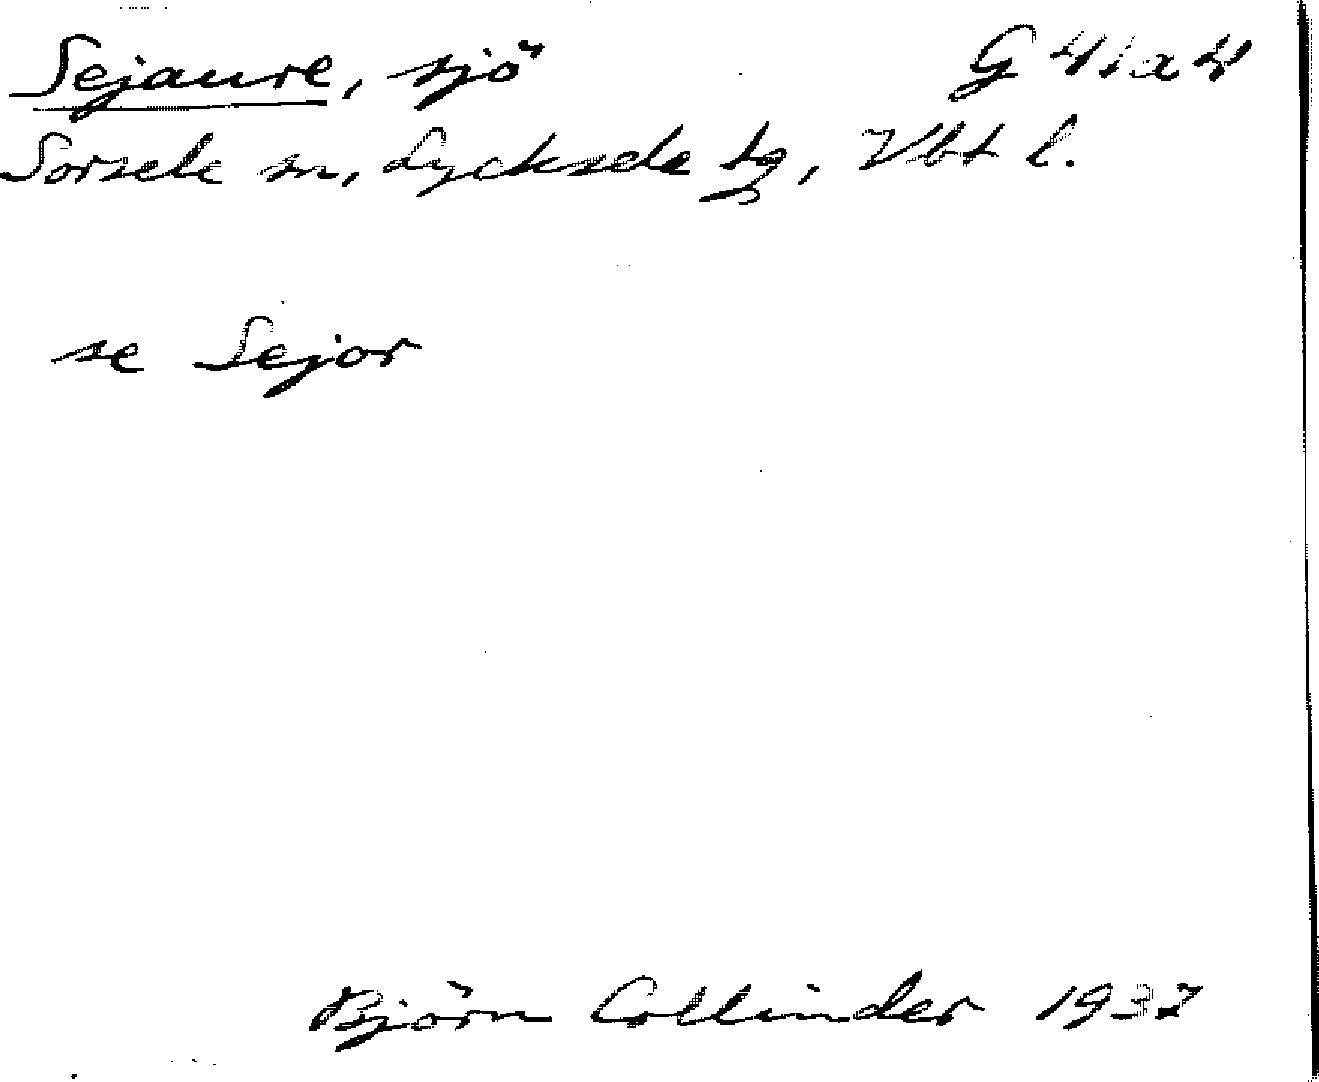 Sejaure, sjö G 41 a 4
Sorsele sn, Lycksele tg, Vbt l.
se Sejor
Björn Collinder 1937